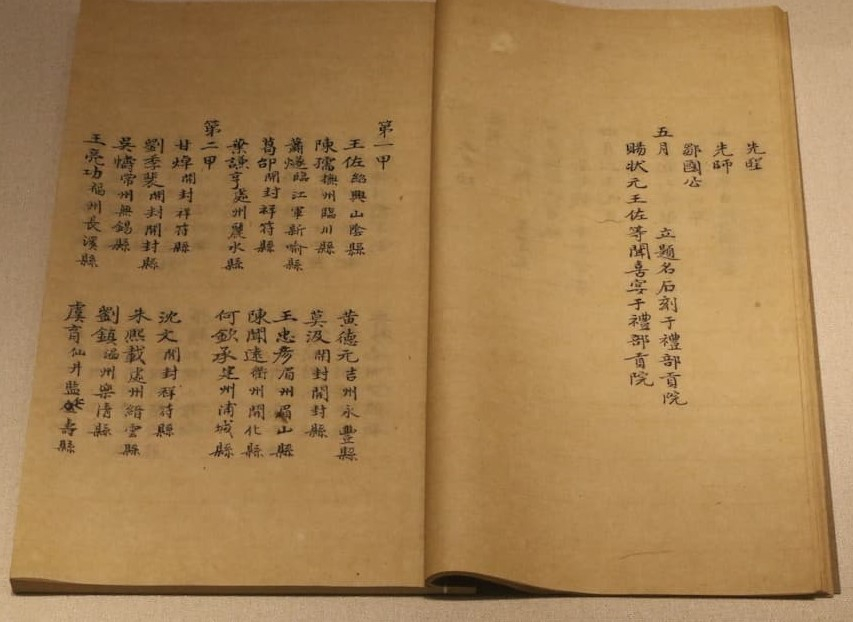 先聖
先師
鄒國公
五月 立題名石刻于禮部貢院
賜狀元王佐等聞喜宴于禮部貢院
第一甲
王佐紹興山陰縣 黃德元吉州永豐縣
陳孺撫州臨川縣 莫汲開封開封縣
蕭燧臨江軍新喻縣 王忠彥眉州眉山縣
葛郃開封祥符縣 陳聞遠衢州開化縣
葉謙亨處州麗水縣 何欽承建州浦城縣
第二甲
甘焯開封祥符縣 沈文開封祥符縣
劉季裴開封開封縣 朱熙載處州縉雲縣
吳 常州無錫縣 劉鎮溫州樂清縣
王亮功福州長溪縣 虞育仙井監 壽縣